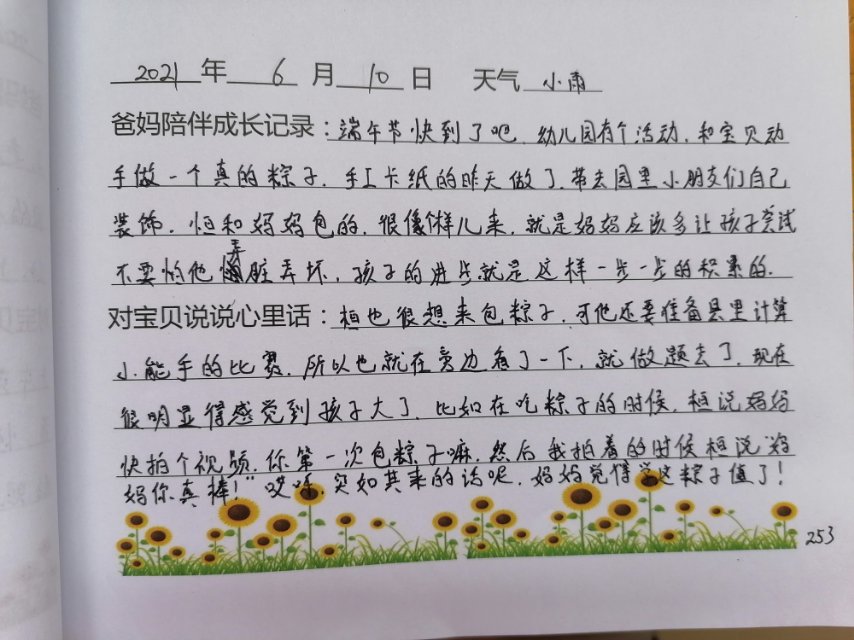 2021 年 6 月 10 日 天气 小雨
爸妈陪伴成长记录:端午节快到了吧,幼儿园有个活动,和宝贝动
手做一个真的粽子,手工卡纸的昨天做了,带去园里小朋友们自己
装饰,恒和妈妈包的,很像个样儿来,就是妈妈应该多让孩子尝试
不要怕他弄脏弄坏,孩子的进步就是这样一步一步的积累的.
对宝贝说说心里话:桓也很想来包粽子,可他还要准备县里计算
小能手的比赛,所以也就在旁边看了一下,就做题去了,现在
很明显得感觉到孩子大了,比如在吃粽子的时候,桓说妈妈
快拍个视频,你第一次包粽子嘛,然后我拍着的时候桓说"妈
妈你真棒!"哎呀,突如其来的话呢,妈妈觉得这粽子值了!
253